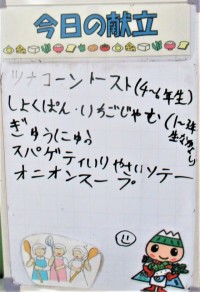 今日の献立
ツナコーントースト(4~6年生)
しょくぱん・いちごじゃむ(1~3年生
ぎゅうにゅう
スパゲティいりやさいソテー
オニオンスープ